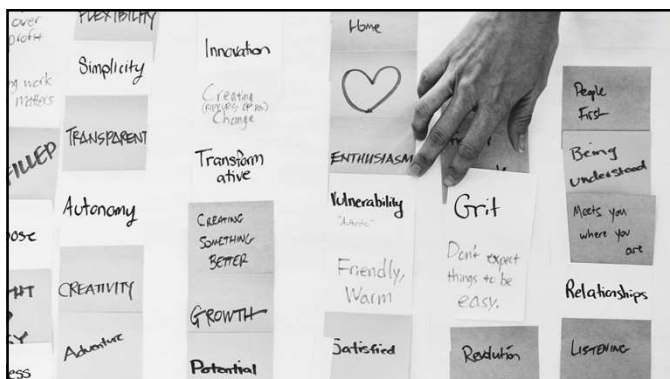 over
profit
work
matters
FILLED
FLEXIBILITY
Simplicity
TRANSPARENT
Autonomy
CREATIVITY
Adventure
Innovation
Creating
Change
Transform
ative
CREATING
SOMETHING
BETTER
GROWTH
Potential
Home
ENTHUSIASM
Vulnerability
"Authentic"
Friendly,
Warm
Satisfied
Grit
Don't expect
things to be
easy.
Revolution
People
First
Being
understood
Meets you
where you
are
Relationships
LISTENING